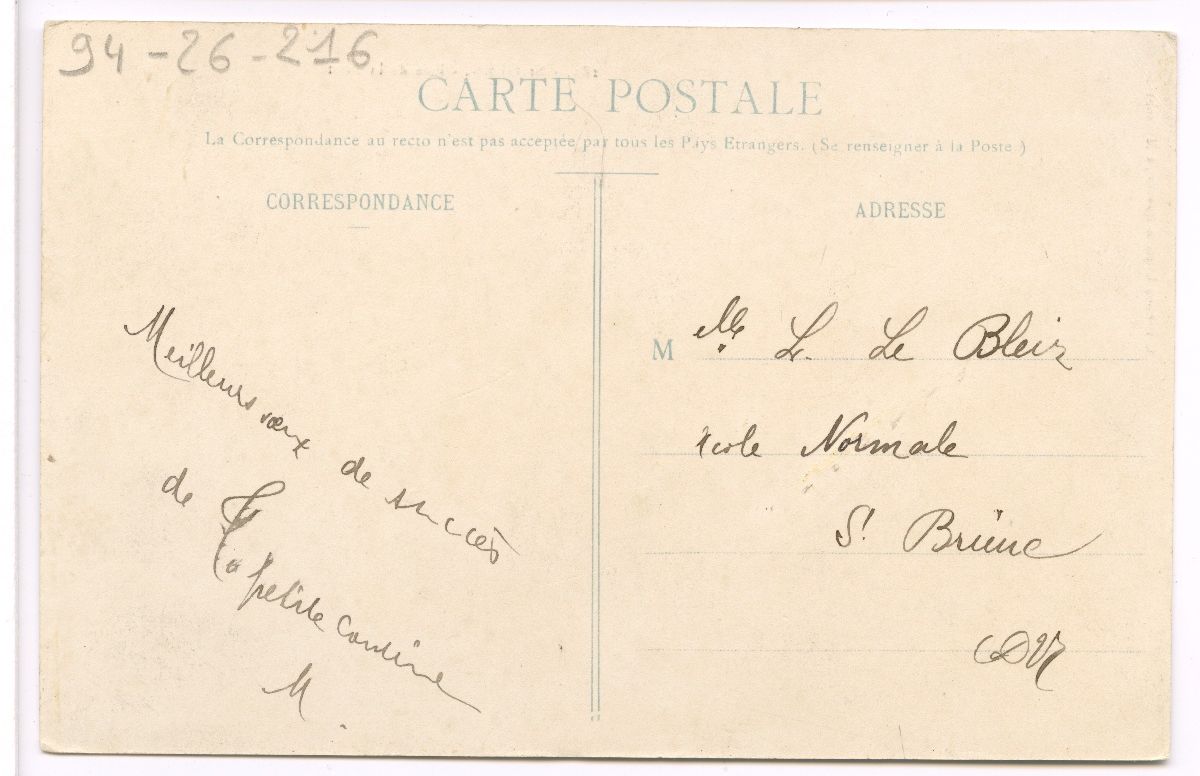 94-26-216
CARTE POSTALE
La Correspondance au recto n'est pas acceptée par tous les Pays Etrangers. (Se renseigner à la Poste)
CORRESPONDANCE
Meilleurs vœux de succès
de Ta petite cousine
M.
ADRESSE
M Mlle L. Le Bleiz
école Normale
St Brieuc
CDN